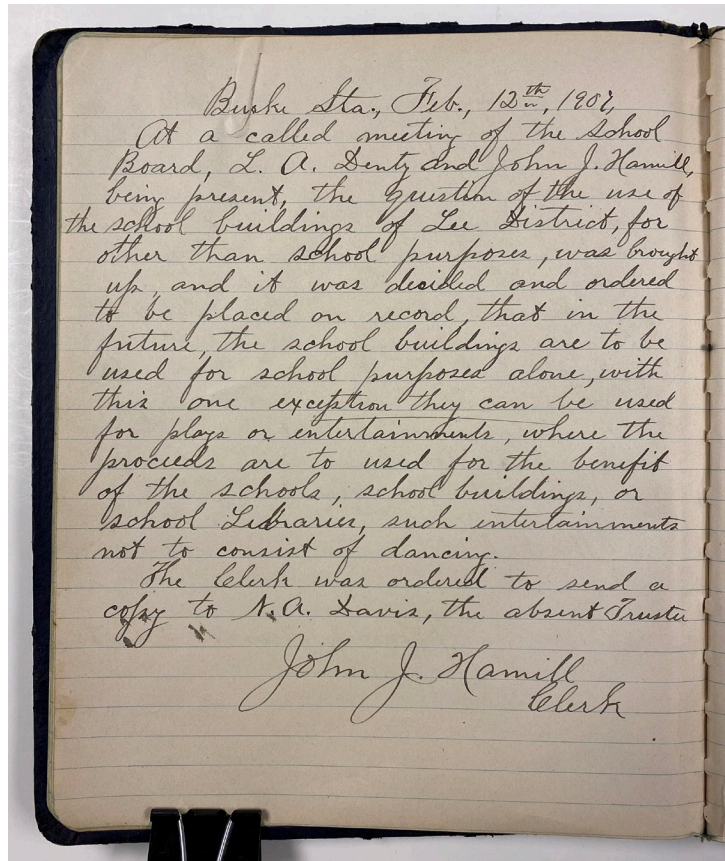 Buske Sta., Feb., 12th, 1907,
At a called meeting of the School
Board, L. A. Dentz and John J. Hamill,
being present, the question of the use of
the school buildings of Lee District, for
other than school purposes, was brought
up, and it was decided and ordered
to be placed on record, that in the
future, the school buildings are to be
used for school purposes alone, with
this one exception they can be used
for plays or entertainments, where the
proceeds are to used for the benefit
of the schools, school buildings, or
school Libraries, such entertainments
not to consist of dancing.
The Clerk was ordered to send a
copy to N. A. Davis, the absent Trustee
John J. Hamill
Clerk